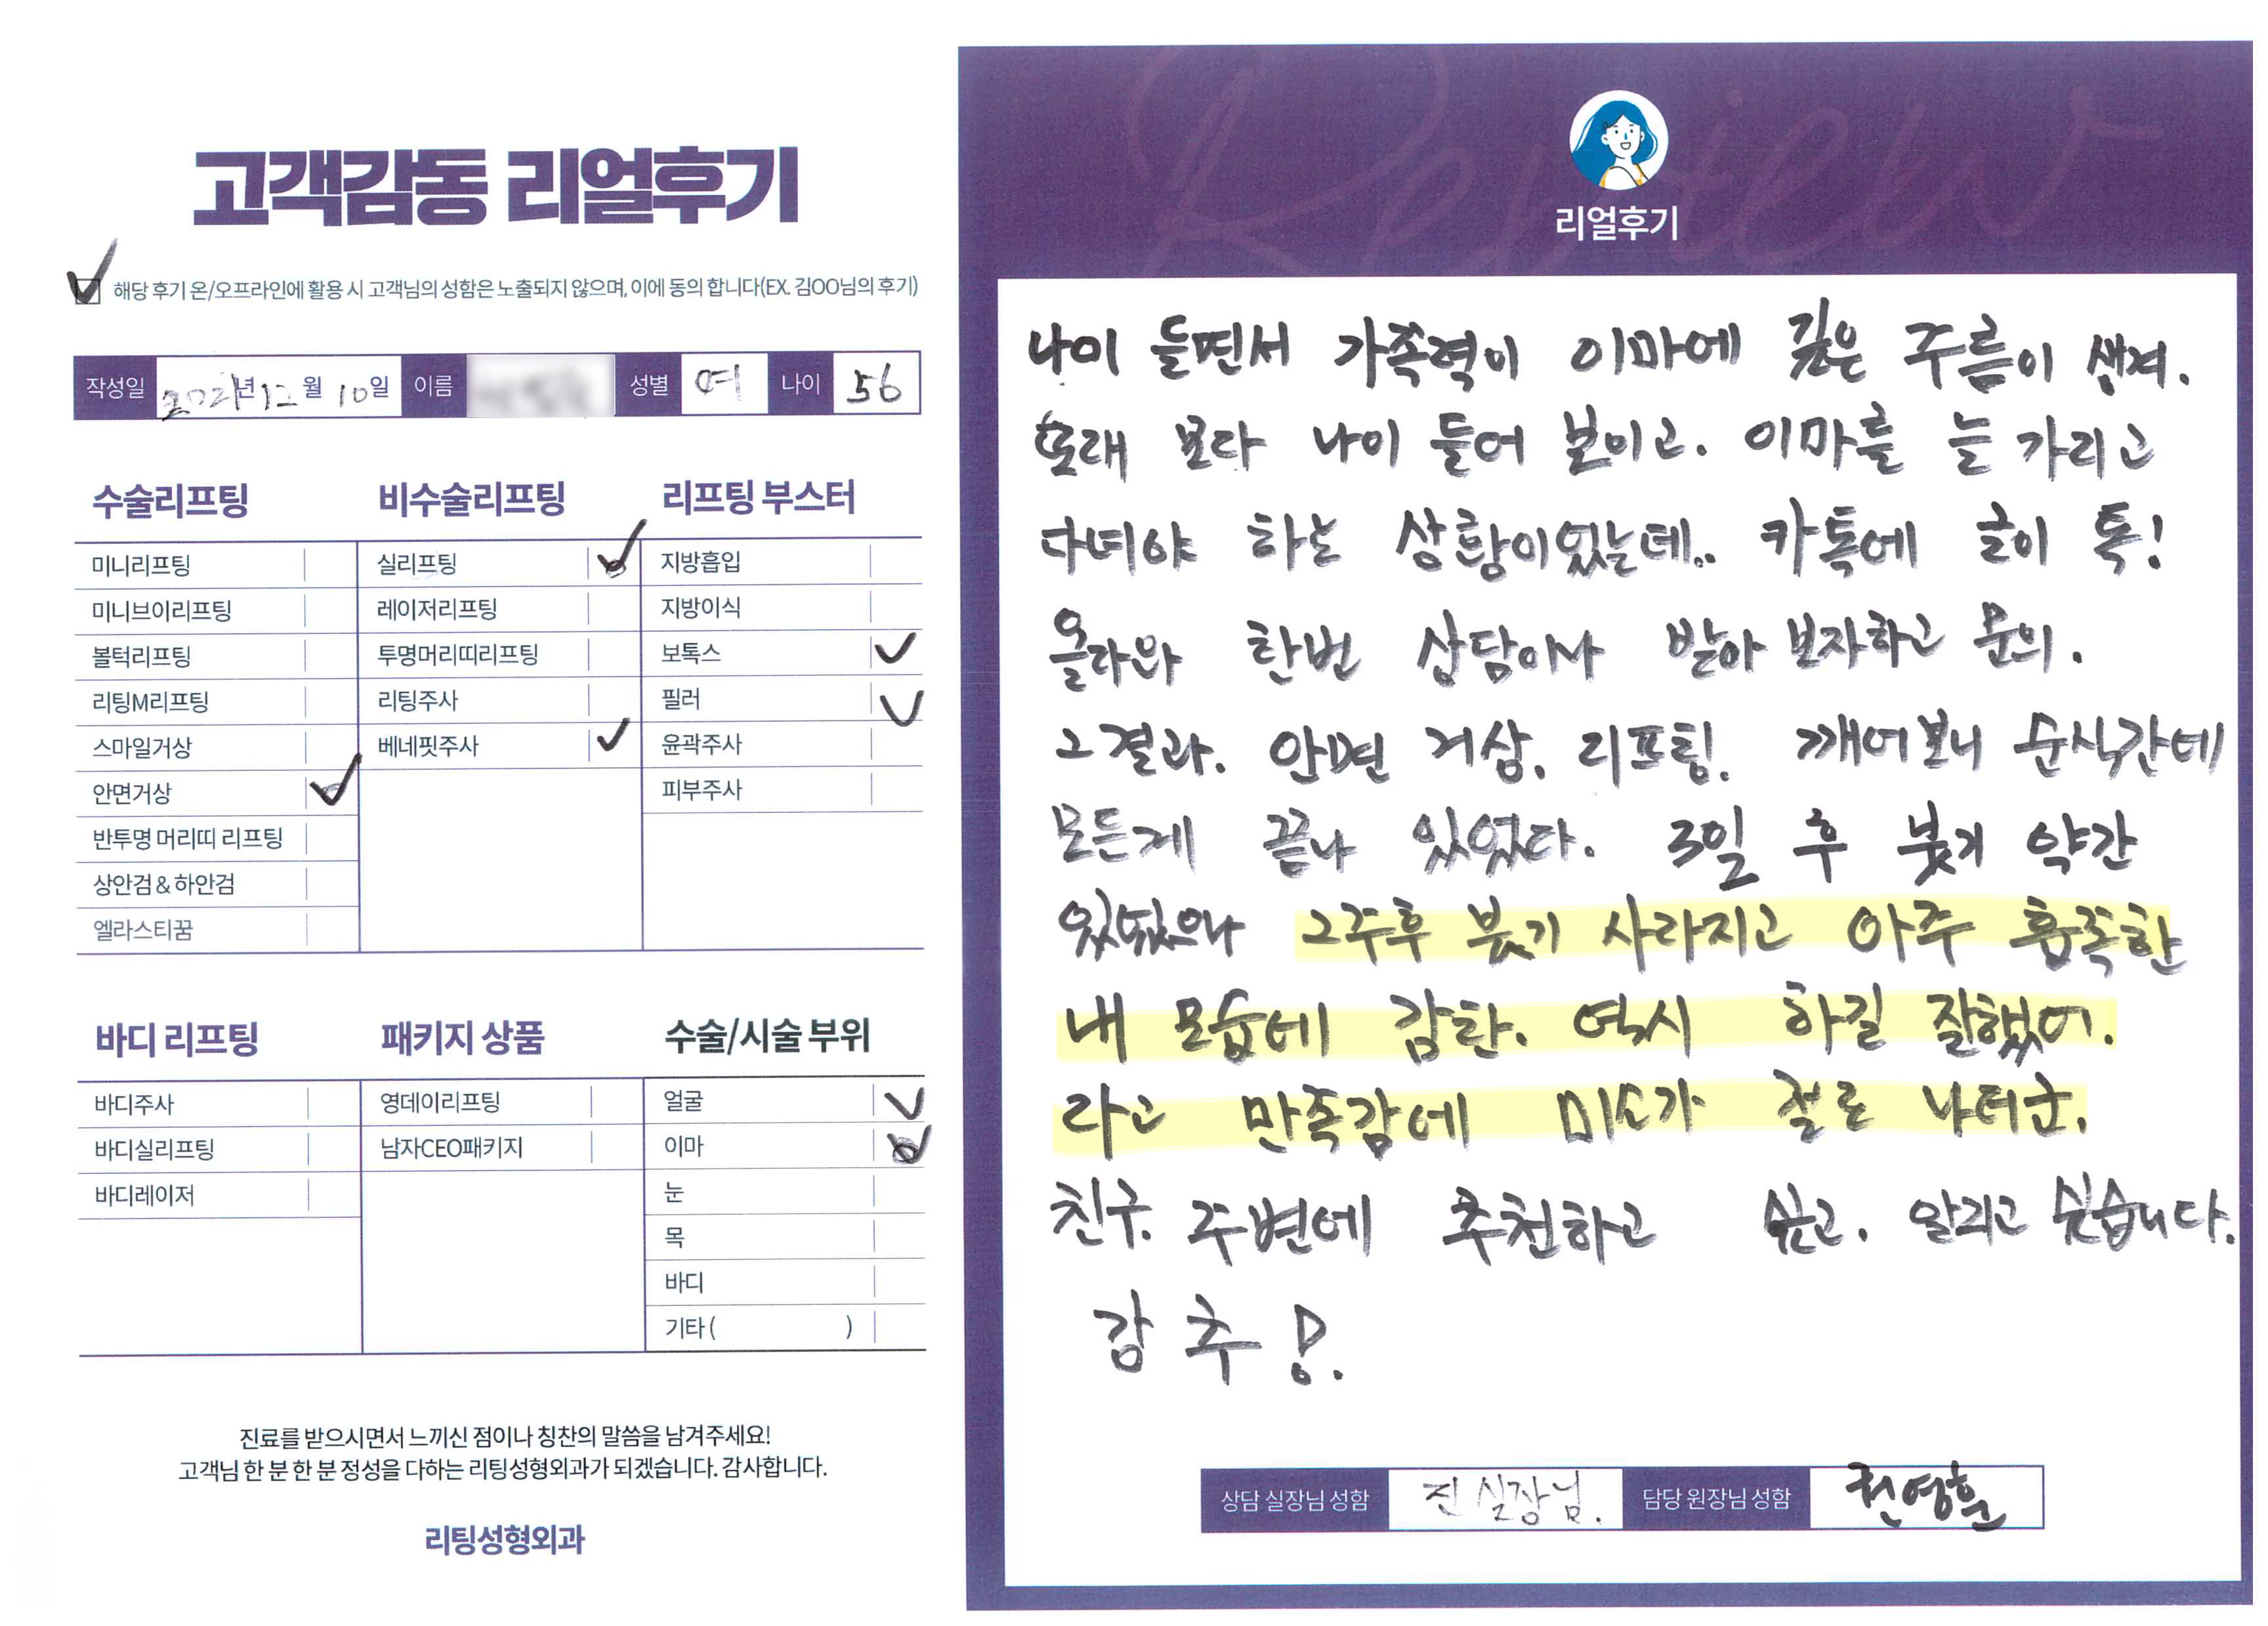 고객감동 리얼후기
해당 후기 온/오프라인에 활용 시 고객님의 성함은 노출되지 않으며, 이에 동의 합니다(EX. 김OO님의 후기)
작성일 2021년 12월 10일 이름 성별 여 나이 56
수술리프팅 비수술리프팅 리프팅 부스터
미니리프팅 실리프팅 지방흡입
미니브이리프팅 레이저리프팅 지방이식
볼턱리프팅 투명머리띠리프팅 보톡스
리팅M리프팅 리팅주사 필러
스마일거상 베네핏주사 윤곽주사
안면거상 피부주사
반투명 머리띠 리프팅
상안검 & 하안검
엘라스티꿈
바디 리프팅 패키지 상품 수술/시술 부위
바디주사 영데이리프팅 얼굴
바디실리프팅 남자CEO패키지 이마
바디레이저 눈
목
바디
기타 ( )
진료를 받으시면서 느끼신 점이나 칭찬의 말씀을 남겨주세요!
고객님 한 분 한 분 정성을 다하는 리팅성형외과가 되겠습니다. 감사합니다.
리팅성형외과
Review
리얼후기
나이 들면서 가족력이 이마에 깊은 주름이 생겨.
또래 보다 나이 들어 보이고. 이마를 늘 가리고
다녀야 하는 상황이었는데.. 카톡에 글이 톡!
올라와 한번 상담이나 받아 보자하고 문의.
그결과. 안면 거상. 리프팅. 깨어보니 순식간에
모든게 끝나 있었다. 3일 후 붓기 약간
있었으나 2주후 붓기 사라지고 아주 흡족한
내 모습에 감탄. 역시 하길 잘했어.
라고 만족감에 미소가 절로 나더군.
친구. 주변에 추천하고 싶고. 알리고 싶습니다.
강추!.
상담 실장님 성함 진 실장님. 담당 원장님 성함 권영훈